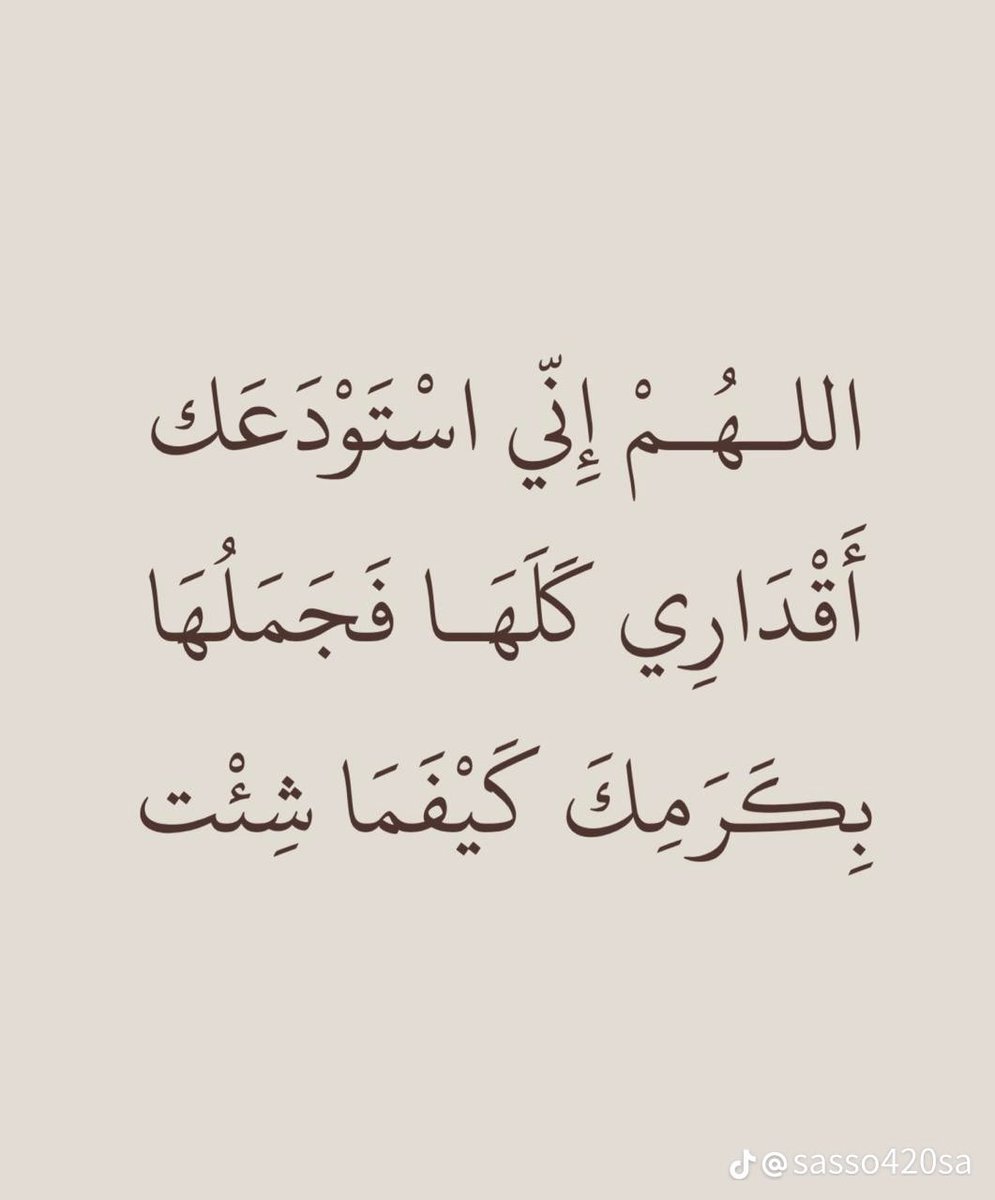 اللـهُـمْ إِنّي اسْتَوْدَعَك
أَقْدَارِي كَلَهَـا فَجَمَلُهَا
بِكَرَمِكَ كَيْفَمَا شِئْت
@sasso420sa